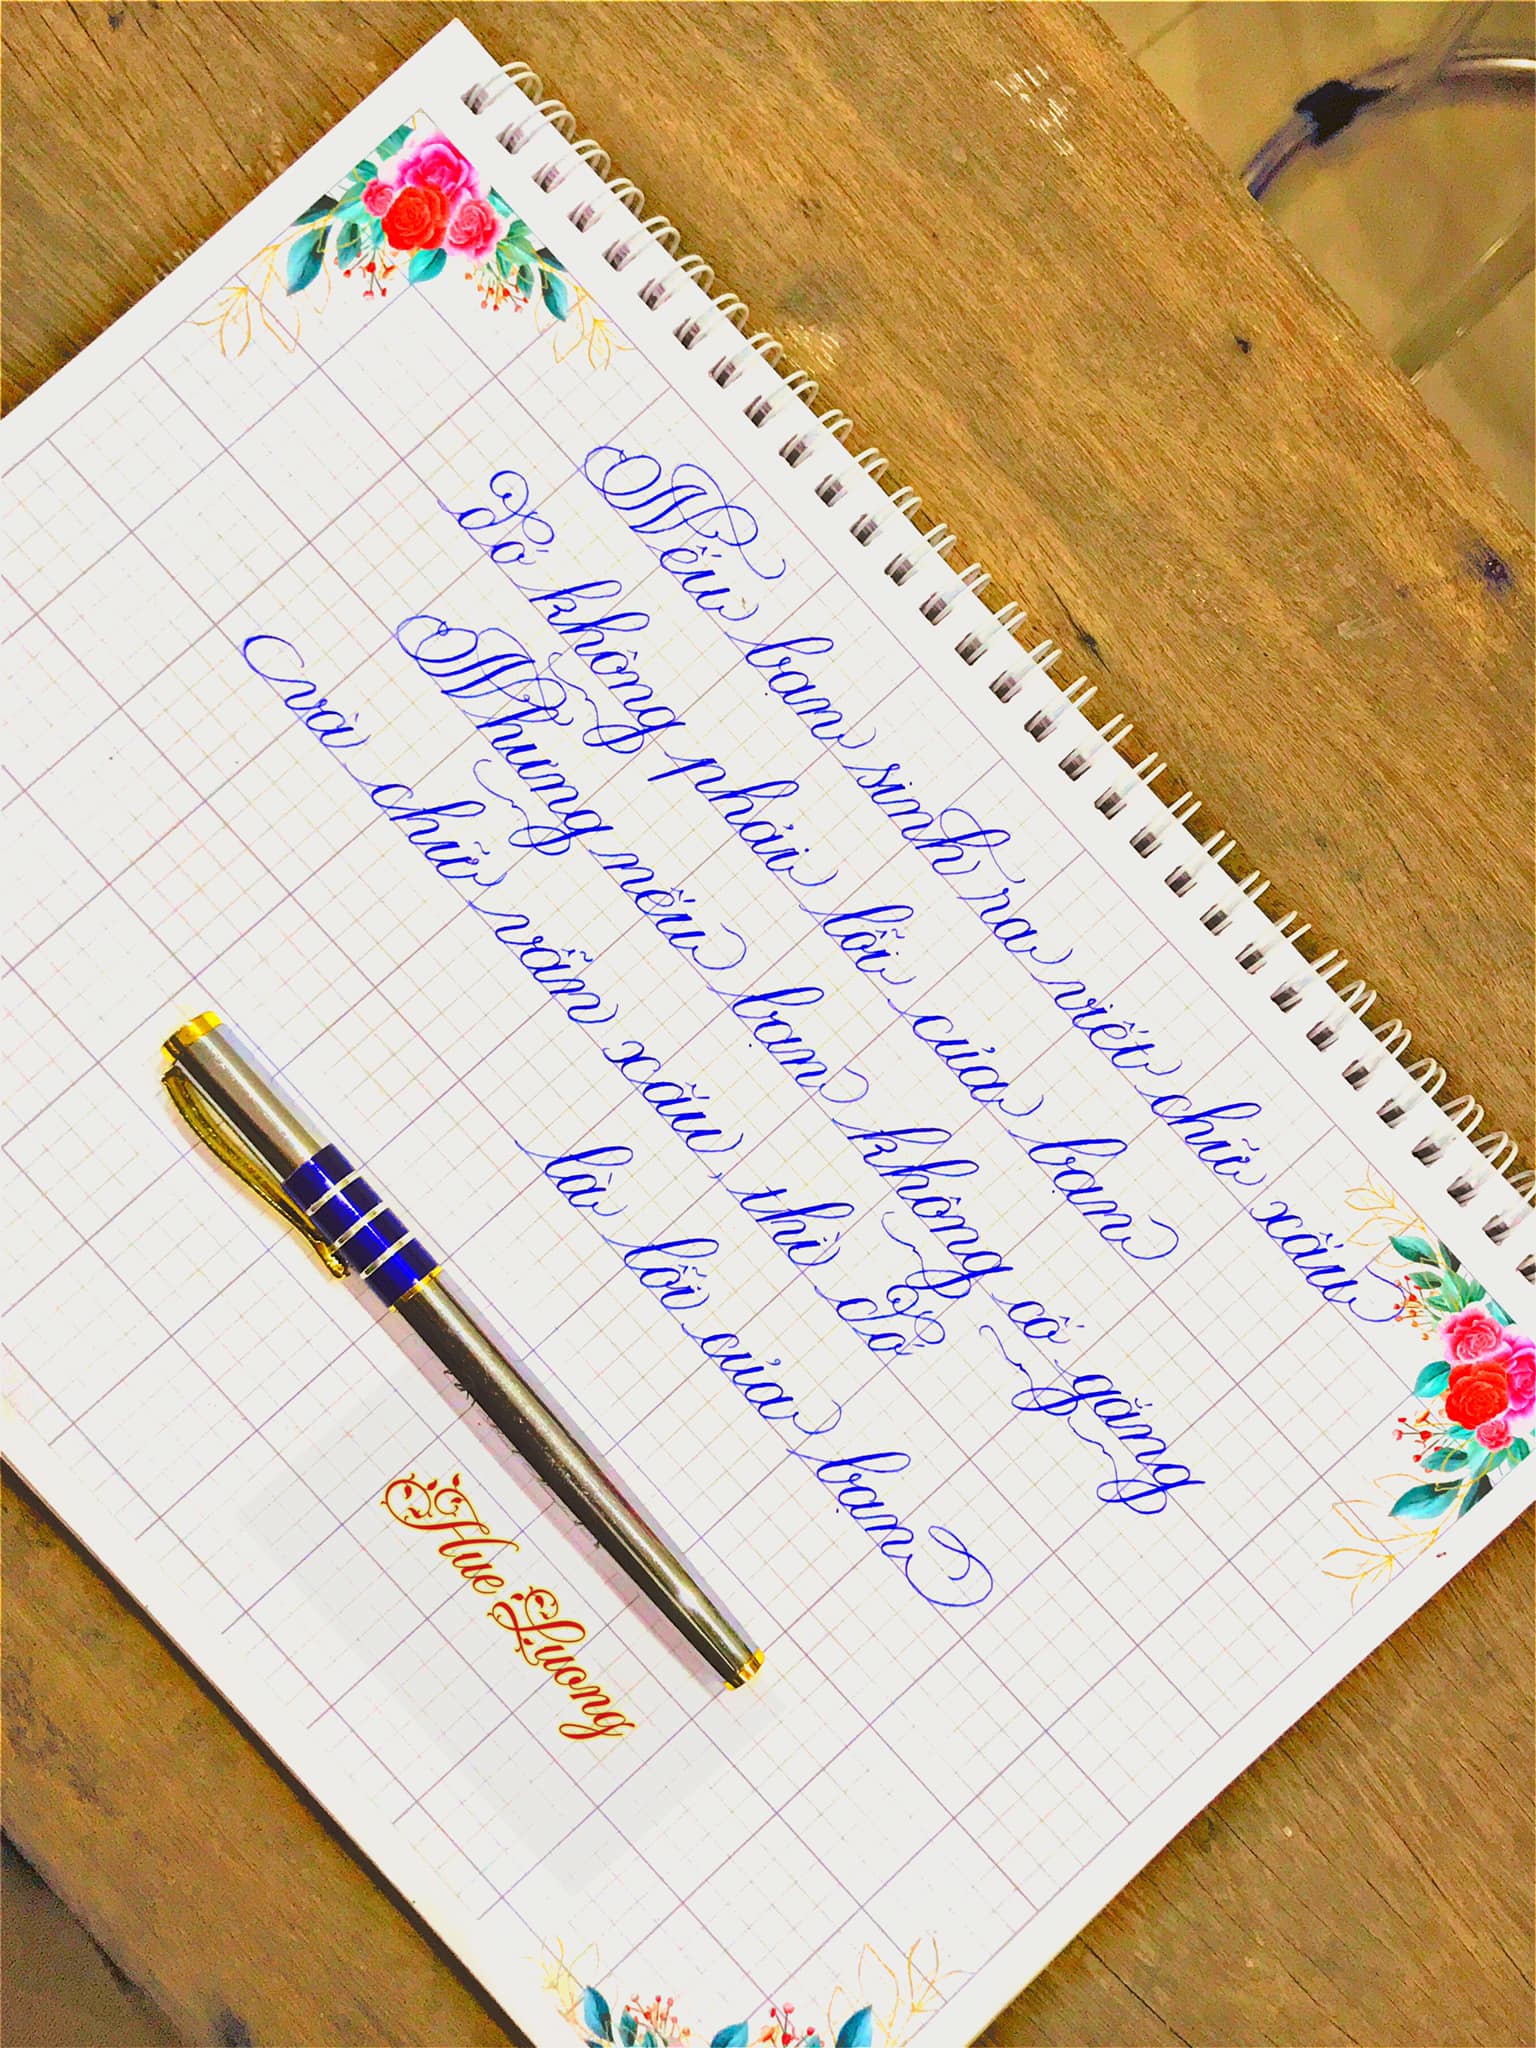 Nếu bạn sinh ra viết chữ xấu
đó không phải lỗi của bạn
Nhưng nếu bạn không cố gắng
và chữ vẫn xấu, thì đó
là lỗi của bạn
Hue Luong